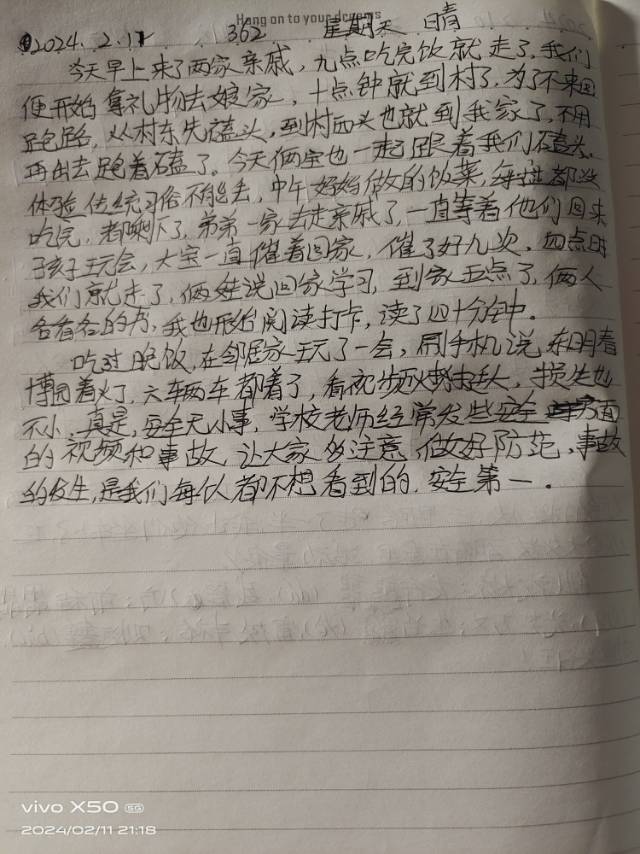 Hang on to your dreams
2024.2.11 362 星期天 晴
今天早上来了两家亲戚，九点吃完饭就走了，我们
便开始拿礼物去娘家，十点钟就到村了，为了不来回
跑路，从村东头磕头，到村西头也就到我家了，不用
再出去跑着磕了。今天俩宝也一起跟着我们磕头，
体验传统习俗不能丢，中午好好做的饭菜，每道都没
吃完，都剩下了，弟弟一家去走亲戚了，一直等着他们回来
孩子玩会，大宝一直催着回家，催了好几次，四点时
我们就走了，俩娃说回家学习，到家五点了，俩人
各看各的书，我也开始阅读打卡，读了四十分钟。
吃过晚饭，在邻居家玩了一会，刷手机说，东明春
博园着火了，火车两车都着了，看视频火挺大，损失也
不小，真是，安全无小事，学校老师经常发些安全方面
的视频和事故，让大家多注意，做好防范，事故
的发生，是我们每人都不想看到的，安全第一。
vivo X50 5G
2024/02/11 21:18